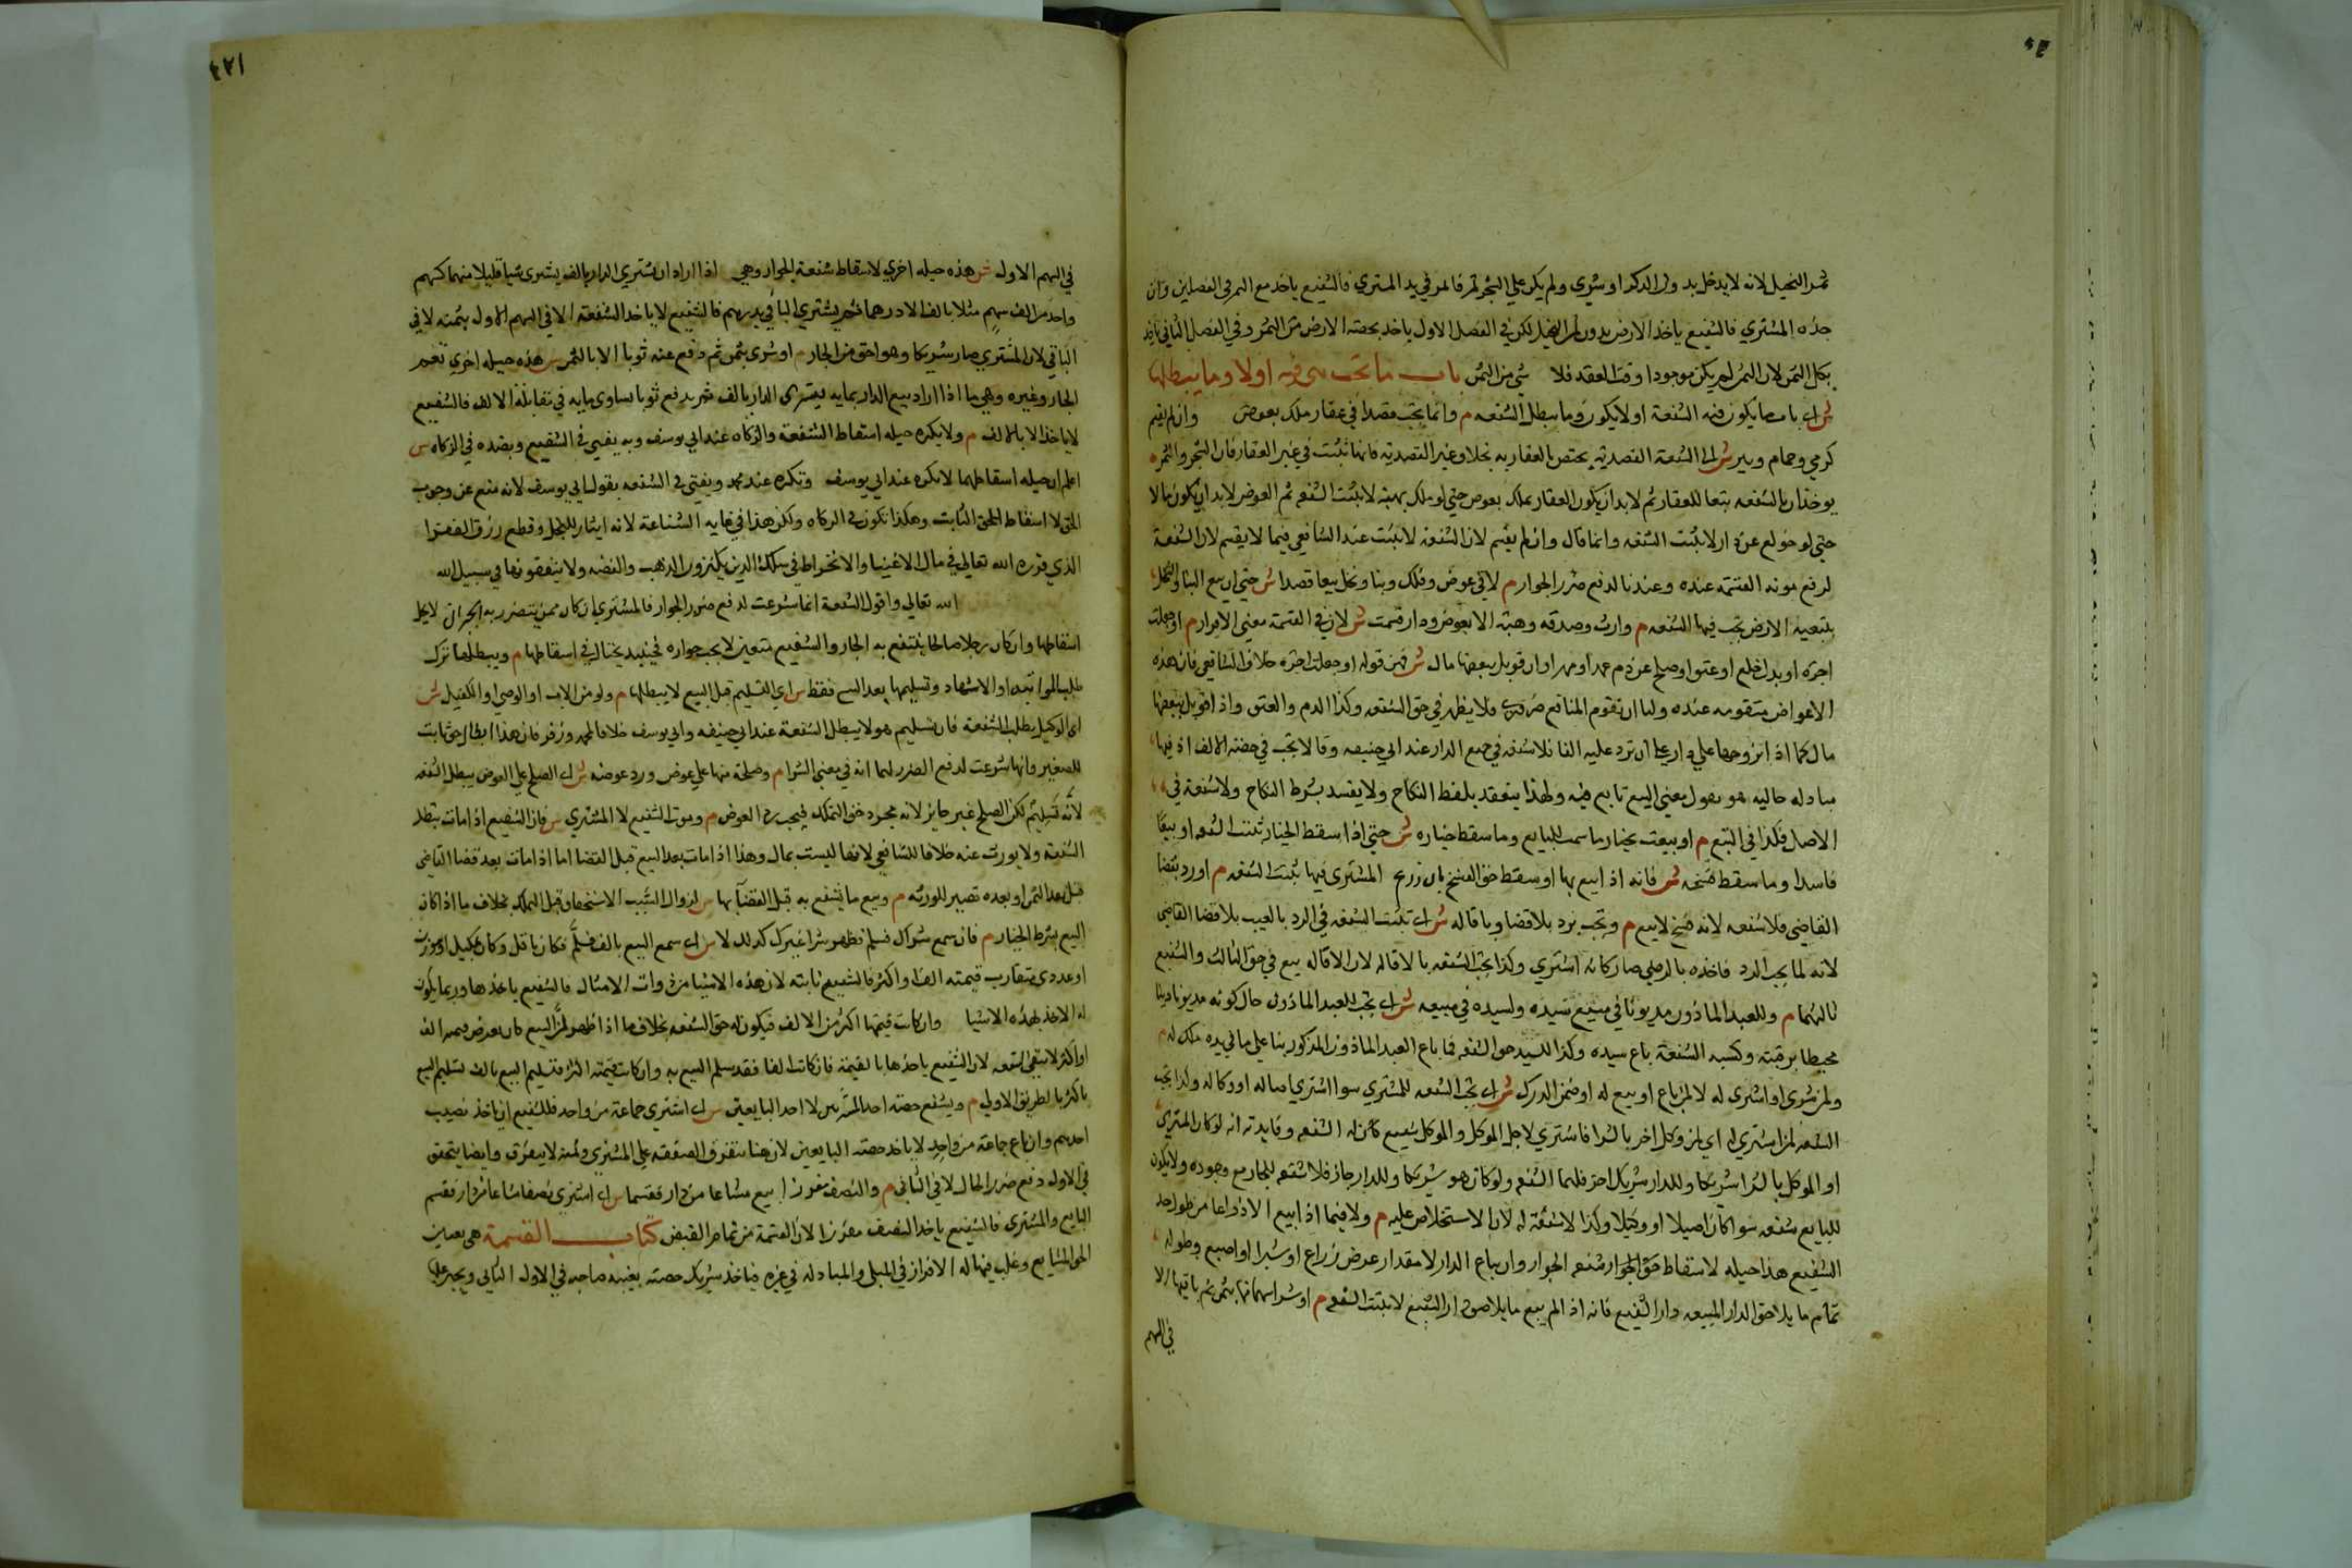 ثمر النخيل لانه لا يدخل بدون الذكر او شري ولم يكن على الشجر ثمر فاثمر في يد المشتري فالشفيع ياخذ مع الثمر في الفصلين وان
جذه المشتري فالشفيع ياخذ الارض بدون ثمر النخيل لكن في الفصل الاول ياخذ بحصته الارض من الثمن وفي الفصل الثاني ياخذ
بكل الثمن لان الثمر لم يكن موجودا وقت العقد فلا شي من الثمن باب ما تجب هي فيه اولا وما يبطلها
ش اي باب ما يكون فيه الشفعة او لا يكون وما يبطل الشفعه م وانما يجب قصدا في عقار ملك بعوض وان لم يقسم
كرحي وحمام وبير ش الشفعة القصدية يختص بالعقار به بخلاف غير القصدية فانها تثبت في غير العقار فان الشجر والثمره
يوخذان بالشفعه تبعا للعقار ثم لا بد ان يكون العقار يملك بعوض حتى لو ملك بهبة لا يثبت الشفعه ثم العوض لا بد ان يكون مالا
حتى لو خولع عن دار لا يثبت الشفعه وانما قال وان لم يقسم لان الشفعه لا يثبت عند الشافعي فيما لا يقسم لان الشفعة
لرفع مونه القسمه عنده وعندنا لدفع ضرر الجوار م لا في عرض وفلك وبنا ونخل بيعا قصدا ش حتى ان بيع البنا والنخل
بتبعيه الارض يجب فيها الشفعه م وارث وصدقه وهبة الا بعوض ودار قسمت ش لان في القسمة معنى الافراز م او جعلت
اجرة او بدل خلع او عتق او صلح عن دم عمد او مهر او ان قوبل ببعضها مال ش فمن قوله او جعلت اجره خلاف الشافعي فان هذه
الاعواض متقومه عنده ولنا ان تقوم المنافع ضروري فلا يظهر في حق الشفعه وكذا الدم والعتق واذا قوبل ببعضها
مال كما اذا تزوجها على دار على ان ترد عليه الفا فلا شفعه في جميع الدار عند ابي حنيفه وقالا يجب في حصة الالف اذ فيها
مبادله ماليه هو يقول معنى البيع تابع فيه ولهذا ينعقد بلفظ النكاح ولا يفسد بشرط النكاح ولا شفعة في
الاصل فكذا في التبع م او بيعت بخيار البايع وما سقط خياره ش حتى اذا سقط الخيار ثبتت الشفعه او بيعا
فاسدا وما سقط فسخه ش فانه اذا بيع بها او سقط حق الفسخ بان زرع المشتري فيها ثبتت الشفعه م او رد بقضا
القاضي فلا شفعه لانه فسخ لا بيع م وتجب برد بلا قضا وباقاله ش اي تثبت الشفعه في الرد بالعيب بلا قضا القاضي
لانه لما يجب الرد فاخذه بالرضي صار كانه اشتري وكذا يجب الشفعه بالاقاله لان الاقاله بيع في حق الثالث والشفيع
ثالثهما م وللعبد الماذون مديونا في مبيع سيده ولسيده في مبيعه ش اي يجب للعبد الماذون حال كونه مديونا دينا
محيطا برقبته وكسبه الشفعة باع سيده وكذا للسيد حق الشفعه فيما باع العبد الماذون المذكور بنا على ما في يده ملك له م
ولمن شري او اشترى له لا لمن باع او بيع له او ضمن الدرك ش اي تجب الشفعه للمشتري سوا اشتري اصاله او وكاله ولذا يجب
الشفعه لمن اشترى له اي لمن وكل اخر بالشرا فاشتري لاجل الموكل والموكل شفيع كان له الشفعه وفايدته انه لو كان المشتري
او الموكل بالشرا شريكا وللدار شريك اخر فلهما الشفعه ولو كان هو شريكا وللدار جار فلا شفعه للجار مع وجوده ولا يكون
للبايع شفعه سوا كان اصيلا او وكيلا وكذا لا شفعة له لان الاستخلاص عليه م ولا فيما اذا بيع الا ذراعا من طول حد
الشفيع هذا حيله لاسقاط حق الجوار وان باع الدار لا مقدار عرض ذراع او شبر او اصبع وطوله
تمام ما يلاصق الدار المبيعه دار الشفيع فانه اذا لم يبع ما يلاصق دار الشفيع لا يثبت الشفعه م او شرا سهما منها بثمن ثم باقيها الا
في السهم
٤٢١
في السهم الاول ش هذه حيله اخري لاسقاط شفعة الجوار وهي اذا اراد ان يشتري الدار بالف يشترى شيا قليلا منها كسهم
واحد من الف سهم مثلا بالف الا درهما ثم يشتري الباقي بدرهم فالشفيع لا ياخذ الشفعة الا في السهم الاول بثمنه لا في
الباقي لان المشتري صار شريكا وهو احق من الجار م او شري بثمن ثم دفع عنه ثوبا الا بالثمن ش هذه حيله اخرى تعم
الجار وغيره وهي ما اذا اراد بيع الدار بمايه فيشتري الدار بالف ثم يدفع ثوبا يساوي مايه في مقابلة الالف فالشفيع
لا ياخذ الا بالالف م ولا يكره حيله اسقاط الشفعة والزكاه عند ابي يوسف وبه يفتي في الشفيع وبضده في الزكاه ش
اعلم ان حيله اسقاطهما لا يكره عند ابي يوسف وتكره عند محمد ويفتى في الشفعه بقول ابي يوسف لانه منع عن وجوب
الحق لا اسقاط الحق الثابت وهكذا نكون في الزكاه ولكن هذا في غايه الشناعة لانه ايثار للبخل وقطع رزق الفقرا
الذي قدره الله تعالى في مال الاغنيا والانخراط في سلك الذين يكنزون الذهب والفضه ولا ينفقونها في سبيل الله
الله تعالى واقول الشفعة انما شرعت لدفع ضرر الجوار فالمشتري ان كان ممن يتضرر به الجيران لا يحل
اسقاطها وان كان رجلا صالحا ينتفع به الجار والشفيع متعنت لا يحب جواره فحينئذ يحتال في اسقاطها م ويبطلها ترك
طلب المواثبه او الاشهاد وتسليمها بعد البيع فقط ش اي التسليم قبل البيع لا يبطلها م ولو من الاب او الوصي او الوكيل ش
اي الوكيل بطلب الشفعة فان تسليم هولا يبطل الشفعة عند ابي حنيفه وابي يوسف خلافا لمحمد وزفر فان هذا ابطال حق ثابت
للصغير وانها شرعت لدفع الضرر لهما انه في معنى الشرا م وصلحه منها على عوض ورد عوضه ش اي الصلح على العوض يبطل الشفعه
لانه تسليم لكن الصلح غير جايز لانه مجرد حق التملك فيجب رد العوض م وموت الشفيع لا المشتري ش فان الشفيع اذا مات تبطل
الشفعه ولا يورث عنه خلافا للشافعي لانها ليست بمال وهذا اذا مات بعد البيع قبل القضا اما اذا مات بعد قضا القاضي
قبل نقد الثمن او بعده تصير للورثه م وبيع ما يشفع به قبل القضا بها ش لزوال السبب الاستحقاق قبل التملك بخلاف ما اذا كان
البيع بشرط الخيار م فان سمع شراك فسلم فظهر شرا غيرك كذلك لا ش اي سمع البيع بالف فسلم فكان باقل وكان بمكيل او موزون
او عددي متقارب قيمته الف او اكثر فالشفيع ثابته لان هذه الاشيا من ذوات الامثال فالشفيع ياخذها وربما يكون
له الاخذ بهذه الاشيا وان كانت قيمتها اكثر من الالف فيكون له حق الشفعه بخلاف ما اذا ظهر ان البيع كان بعرض قيمته الف
او اكثر لا تبقى الشفعه لان الشفيع ياخذها بالقيمة فان كانت الفا فقد سلم البيع به وان كانت قيمته اكثر فتسليم البيع بالف تسليم البيع
باكثر بالطريق الاولى م ويشفع حصة احد المشتريين لا احد البايعين ش اي اشتري جماعة من واحد فللشفيع ان ياخذ نصيب
احدهم وان باع جماعة من واحد لا ياخذ حصة البايعين لان هنا تتفرق الصفقه على المشتري وثمه لا يتفرق وايضا يتحقق
في الاول دفع ضرر الجار لا في الثاني م والنصف مفرزا بيع مشاعا من دار فقسما ش اي اشترى نصفا مشاعا من دار فقسم
البايع والمشتري فالشفيع ياخذ النصف مفرزا لان القسمة من تمام القبض كتاب القسمة هي تعيين
الحق الشايع وغلب فيها له الافراز في المثلي والمبادله في غيره فياخذ شريك حصته بغيبه صاحبه في الاول لا الثاني ويجبر عليها